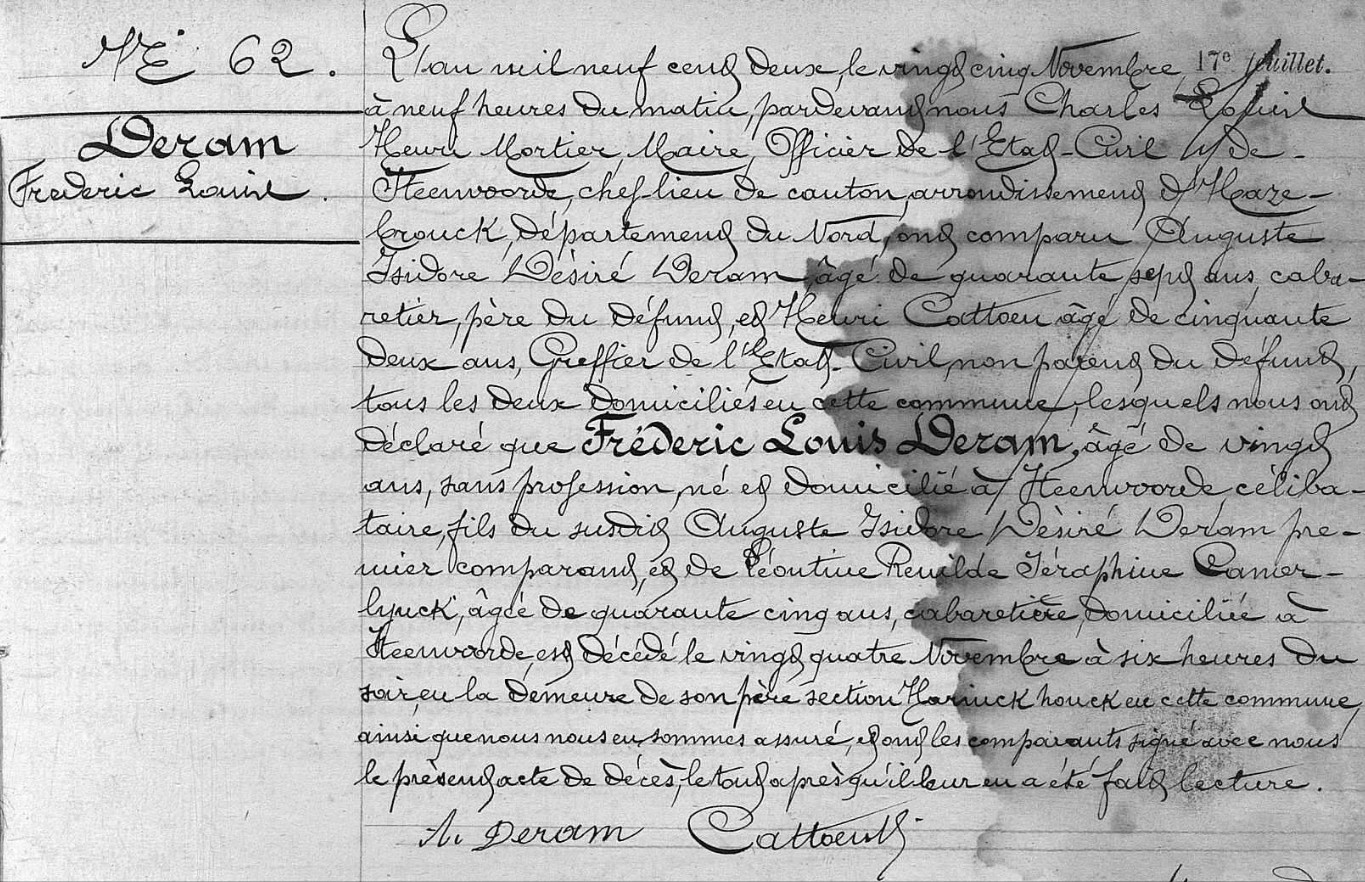 N° 62.
Deram
Frederic Louis.
L'an mil neuf cent deux, le vingt cinq Novembre 17e juillet.
à neuf heures du matin, pardevant nous Charles
Henri Mortier, Maire, Officier de l'Etat-Civil de
Steenvoorde, chef-lieu de canton, arrondissement d'Haze-
brouck, département du Nord, ont comparu Auguste
Isidore Désiré Deram âgé de quarante sept ans, caba-
retier, père du défunt, et Henri Cattoen âgé de cinquante
deux ans, Greffier de l'Etat-Civil, non parent du défunt,
tous les deux domiciliés en cette commune, lesquels nous ont
déclaré que Fréderic Louis Deram, âgé de vingt
ans, sans profession, né et domicilié à Steenvoorde, céliba-
taire, fils du susdit Auguste Isidore Désiré Deram pre-
mier comparant, et de Léontine Renilde Séraphine Camer-
lynck, âgée de quarante cinq ans, cabaretière, domiciliée à
Steenvoorde, est décédé le vingt quatre Novembre à six heures du
soir, en la demeure de son père section houck en cette commune,
ainsi que nous nous en sommes assuré, et ont les comparants signé avec nous
le présent acte de décès, le tout après qu'il leur en a été fait lecture.
A. Deram Cattoen